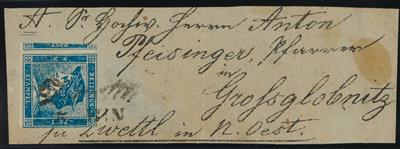 Sr Hochw. Herrn Anton
Pfeisinger, Pfarrer
in
Großglobnitz
pr Zwettl in N. Oest.
K.K.
ZEITUNGS
POST
STÄMPEL